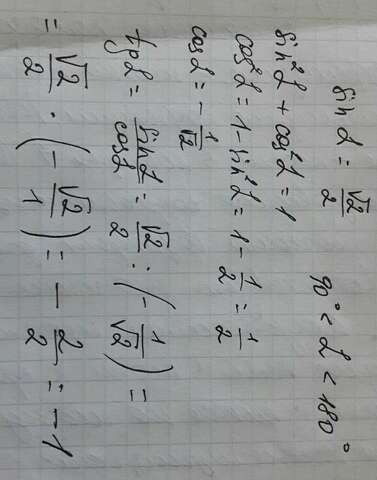 sin α = √2/2   90° < α < 180°
sin²α + cos²α = 1
cos²α = 1 - sin²α = 1 - 1/2 = 1/2
cos α = - 1/√2
tg α = sin α/cos α = √2/2 : (- 1/√2) =
= √2/2 · (- √2/1) = - 2/2 = -1